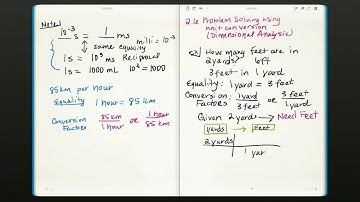 Note:
10⁻³ s = 1/1 ms
milli = 10⁻³
same equality
1s = 10³ ms Reciprocal
1s = 1000 mL 10³ = 1000
85km per hour
Equality 1 hour = 85 km
Conversion Factors 85 km/1 hour or 1 hour/85 km
2.6 Problem Solving using
unit conversion
(Dimensional Analysis)
ex) How many feet are in
2 yards? left
3 feet in 1 yard
Equality: 1 yard = 3 feet
Conversion Factors: 1 yard/3 feet or 3 feet/1 yard
Given 2 yards → Need Feet
yards → Feet
2 yards
1 yar